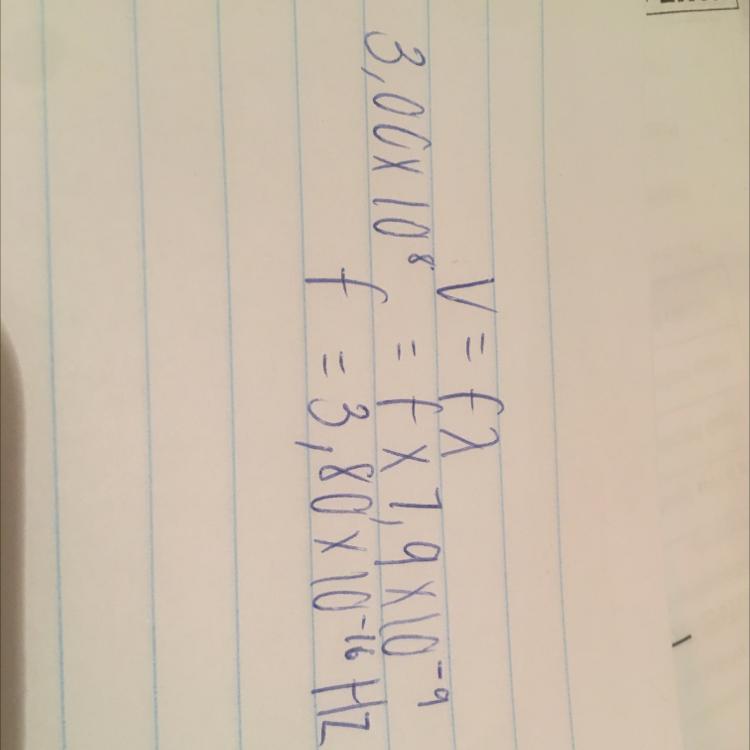 V = fλ
3,00 × 10⁸ = f × 7,9 × 10⁻⁹
f = 3,80 × 10⁻¹⁶ Hz